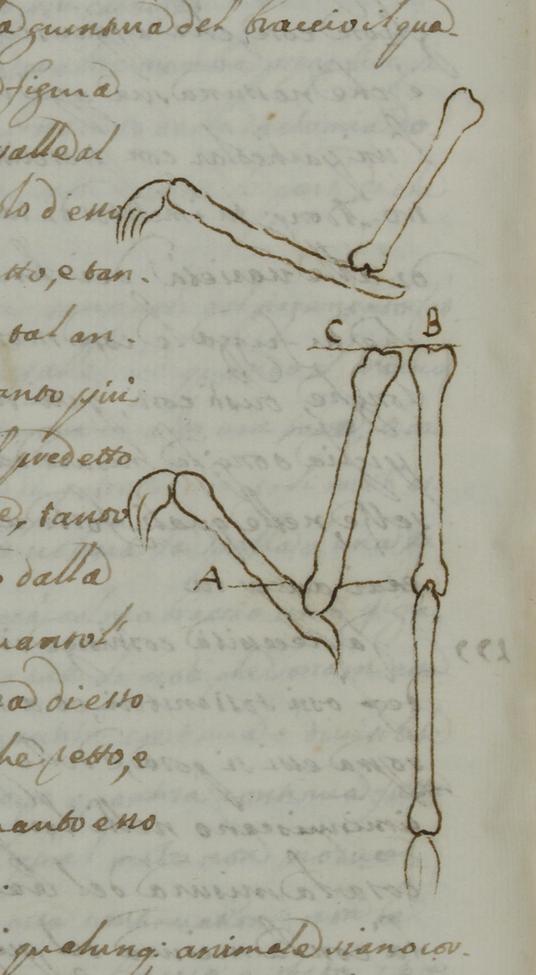 a giuntura del braccio il qua-
figura
valle al
lo d esso
tto, e tan-
tal an-
anto piu
C B
l predetto
e, tanto
A
dalla
uanto
a di esso
he petto, e
uanto esso
qualunq: animale siano cor-